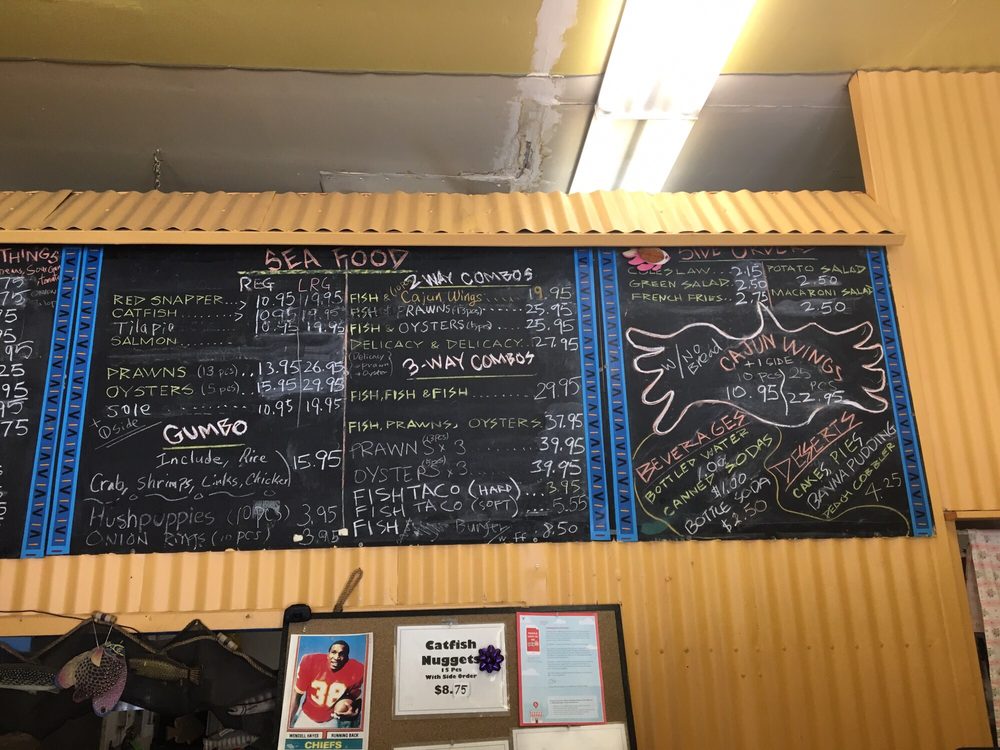 THINGS
75
75
75
95
25
95
95
75
SEA FOOD
REG LRG
RED SNAPPER... 10.95 19.95
CATFISH 10.95 19.95
Tilapia 10.95 19.95
SALMON
PRAWNS (13 pcs) ... 13.95 26.95
OYSTERS (5 pcs) 15.95 29.95
Sole ........ 10.95 19.95
+ ① side
GUMBO
Include, Rice
Crab, Shrimps, Links, Chicken
15.95
Hushpuppies (10 pcs) 3.95
ONION RINGS (10 pcs) 3.95
2 WAY COMBOS
FISH & Cajun Wings 19.95
FISH & PRAWNS (13pcs) 25.95
FISH & OYSTERS (5pcs) 25.95
DELICACY & DELICACY.. 27.95
(Delicacy
= prawn
+ Oyster
3-WAY COMBOS
FISH, FISH & FISH ........ 29.95
FISH, PRAWNS, OYSTERS. 37.95
PRAWN (13pcs) x 3 39.95
OYSTER x 3 39.95
FISH TACO (HARD) ... 3.95
FISH TACO (SOFT) ... 5.55
FISH Burger w/ ff. 8.50
SIDE ORDERS
SLAW... 2.15
GREEN SALAD. 2.50
FRENCH FRIES.. 2.75
POTATO SALAD
2.50
MACARONI SALAD
2.50
W/NO
Bread
CAJUN WINGS
+ 1 SIDE
10 PCS 25 PCS
10.95 22.95
BEVERAGES
BOTTLED WATER
1.00
CANNED SODAS
$1.00
BOTTLE SODA
$2.50
DESSERTS
CAKES, PIES
BANNA PUDDING
PEACH COBBLER
4.25
38
WENDELL HAYES RUNNING BACK
CHIEFS
Catfish
Nuggets
15 Pcs
With Side Order
$8.75